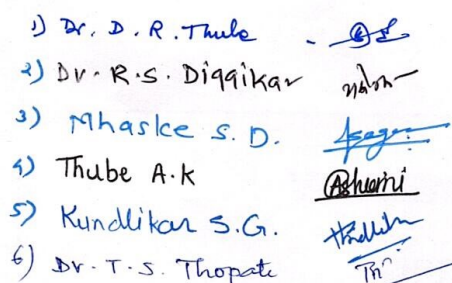 1) Dr. D. R. Thube
2) Dr. R. S. Diggikar
3) Mhaske S. D.
4) Thube A. K Ashwini
5) Kundlikar S. G.
6) Dr. T. S. Thopate